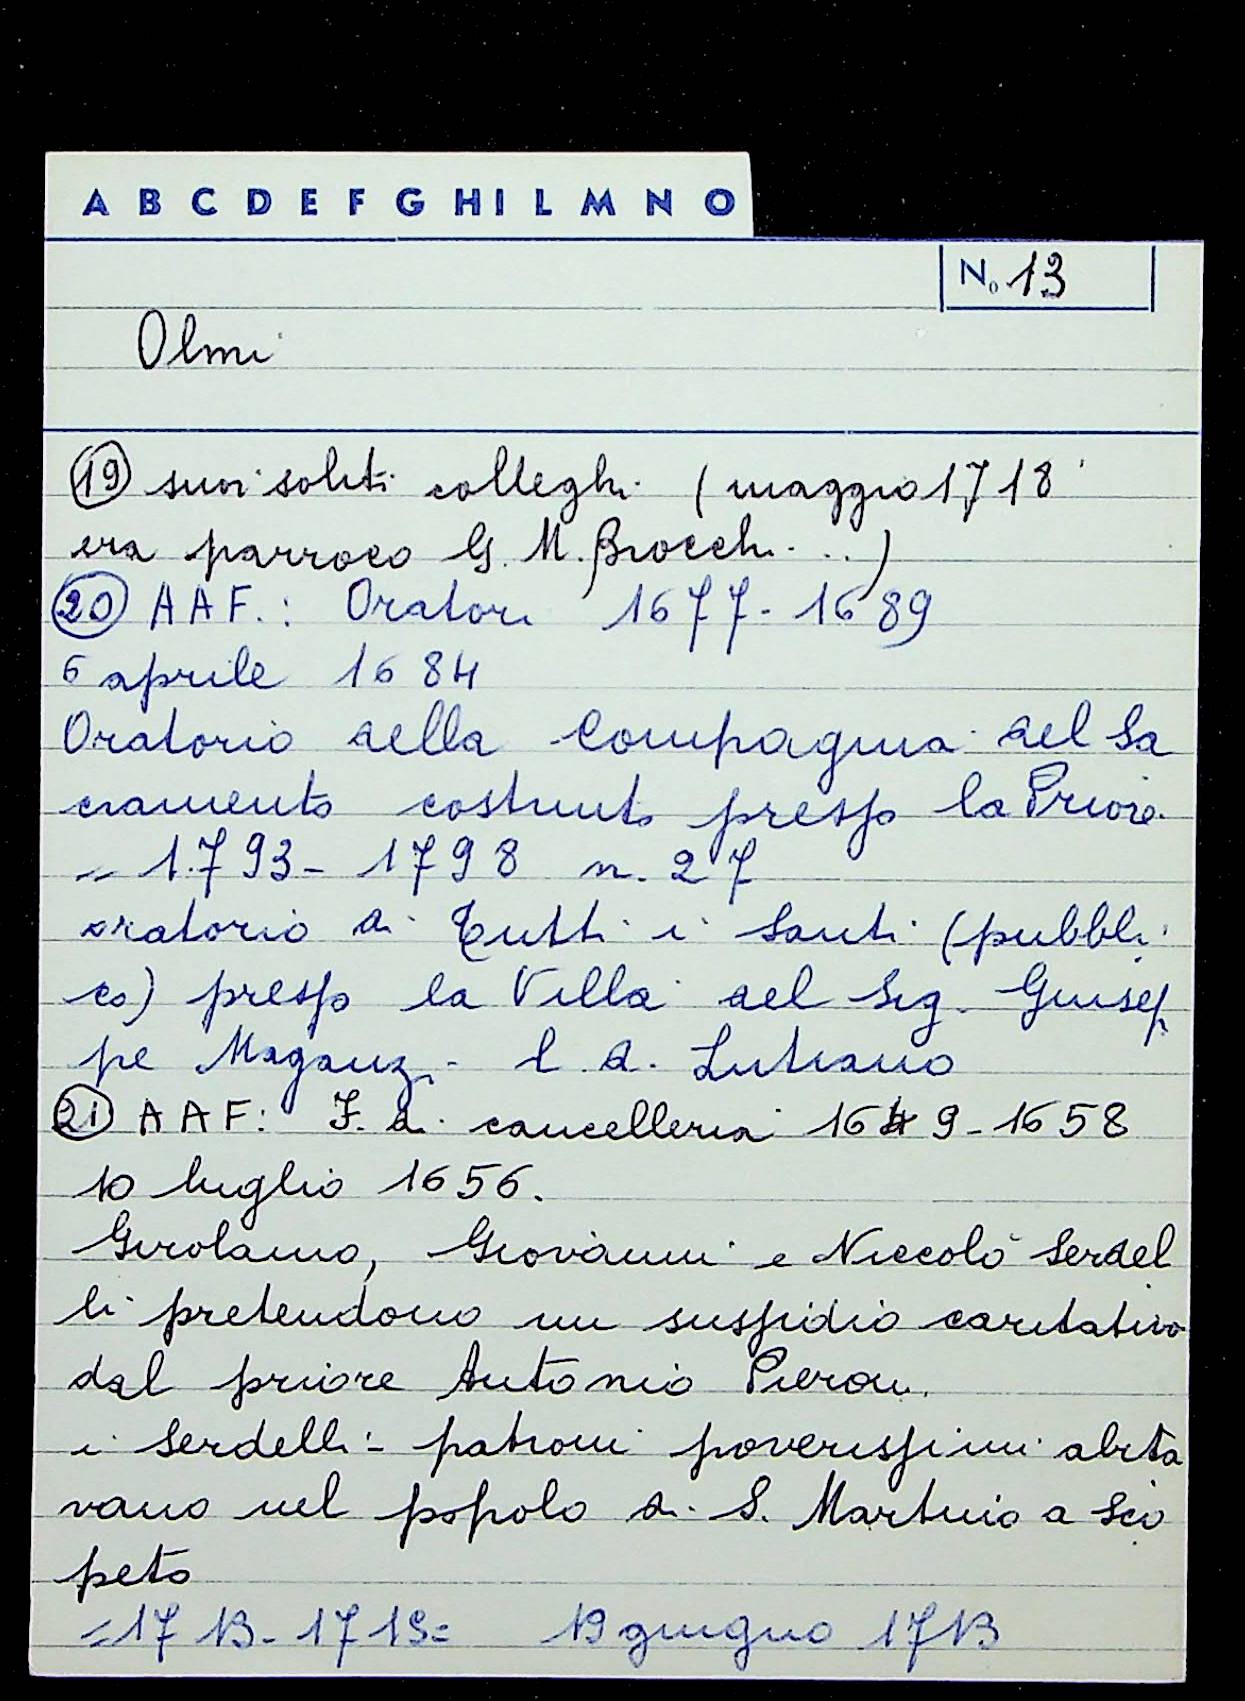 A B C D E F G H I L M N O
No 13
Olmi
19 suoi soliti colleghi (maggio 1718
era parroco G. M. Brocchi...)
20 AAF.: Oratori 1677-1689
6 aprile 1684
Oratorio della Compagnia del Sa
cramento costruito presso la Priori.
= 1793-1798 n. 27
oratorio di Tutti i Santi (pubbli
co) presso la Villa del Sig. Giusep
pe Maganzi l. d. Lutiano
21 AAF: F. di cancelleria 1649-1658
10 luglio 1656.
Girolamo, Giovanni e Niccolò Serdel
li pretendono un sussidio caritativo
dal priore Antonio Pieroni.
i Serdelli - patroni poverissimi abita
vano nel popolo di S. Martino a Sco
peto
=1713-1719= 13 giugno 1713